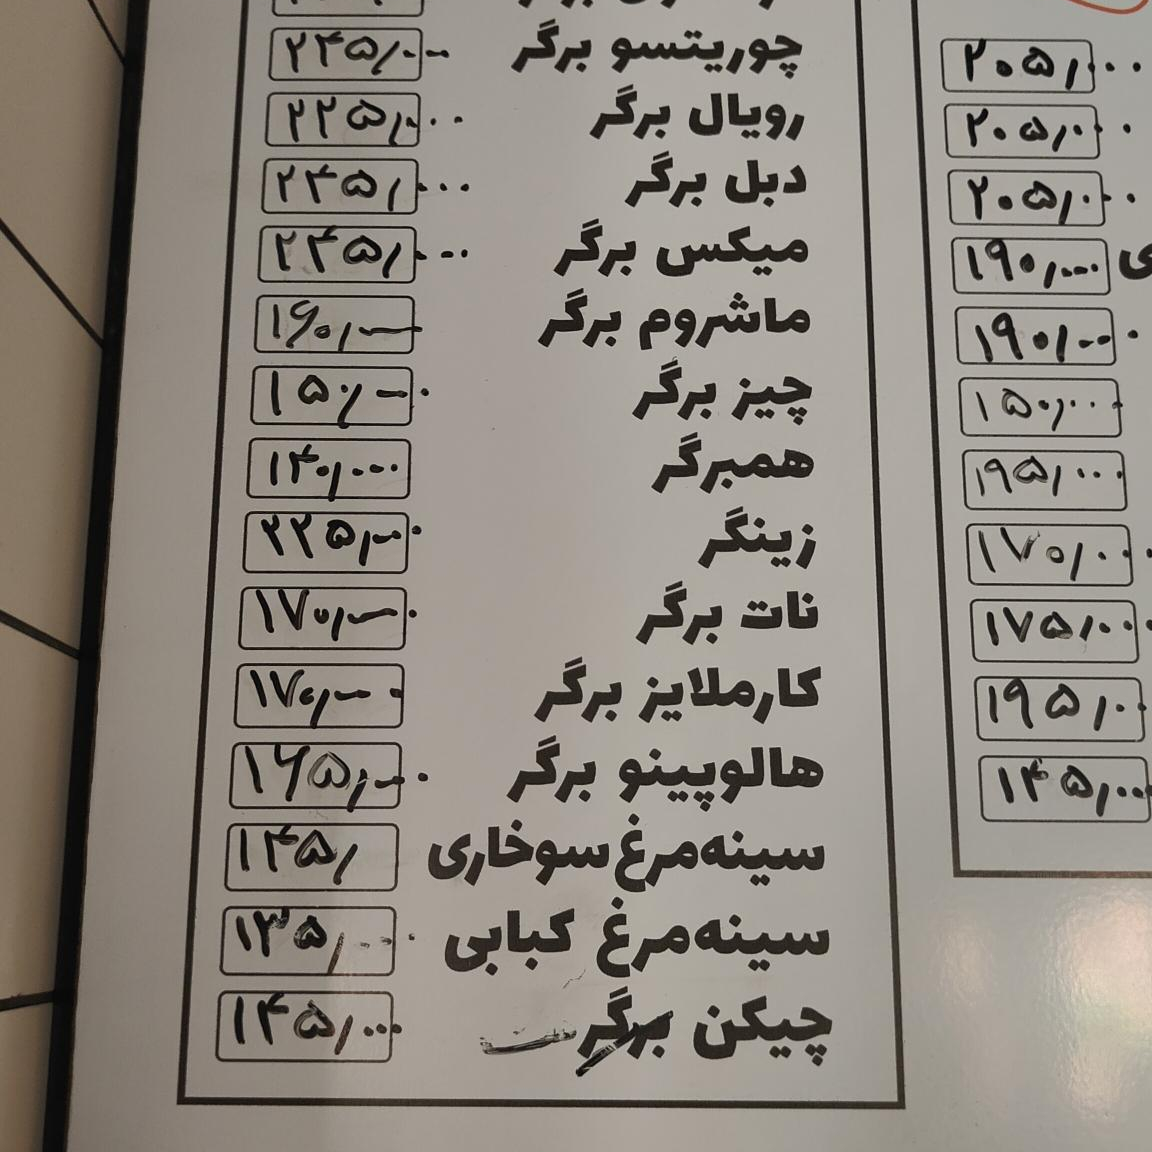 چوریتسو برگر ۲۴۵/۰۰۰
رویال برگر ۲۲۵/۰۰۰
دبل برگر ۲۴۵/۰۰۰
میکس برگر ۲۴۵/۰۰۰
ماشروم برگر ۱۶۰/۰۰۰
چیز برگر ۱۵۰/۰۰۰
همبرگر ۱۴۰/۰۰۰
زینگر ۲۲۵/۰۰۰
نات برگر ۱۷۰/۰۰۰
کارملایز برگر ۱۷۰/۰۰۰
هالوپینو برگر ۱۶۵/۰۰۰
سینه‌مرغ سوخاری ۱۴۵/
سینه‌مرغ کبابی ۱۳۵/۰۰۰
چیکن برگر ۱۴۵/۰۰۰
۲۰۵/۰۰۰
۲۰۵/۰۰۰
۲۰۵/۰۰۰
۱۹۰/۰۰۰
۱۹۰/۰۰۰
۱۵۰/۰۰۰
۱۹۵/۰۰۰
۱۷۰/۰۰۰
۱۷۵/۰۰۰
۱۹۵/۰۰
۱۴۵/۰۰۰